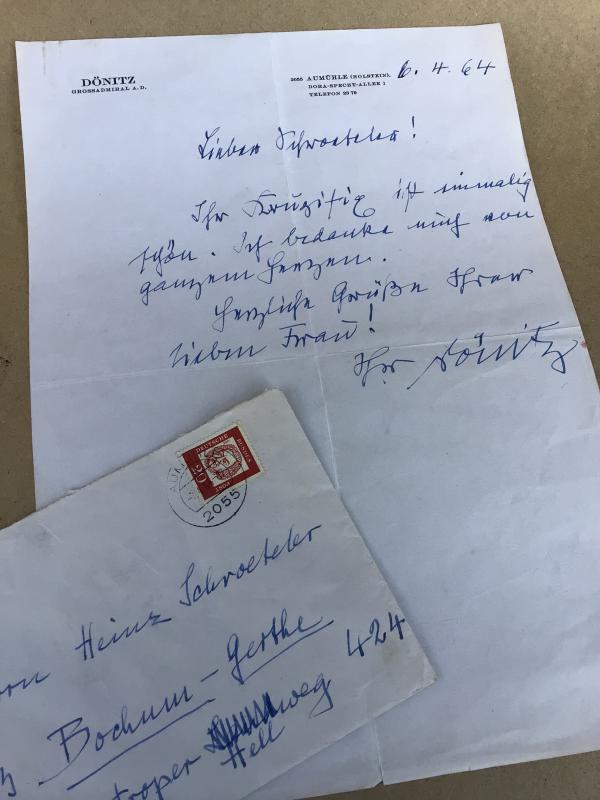 DÖNITZ
GROSSADMIRAL A.D.
2055 AUMÜHLE (HOLSTEIN),
DORA-SPECHT-ALLEE 1
TELEFON 23 78
6. 4. 64
Lieber Schroeteler!
Ihr Kruzifix ist einmalig
schön. Ich bedanke mich von
ganzem Herzen.
Herzliche Grüße Ihrer
lieben Frau!
Ihr Dönitz
DEUTSCHE BUNDES
20
2055
Heinz Schroeteler
Bochum-Gerthe
424
troper Hellweg